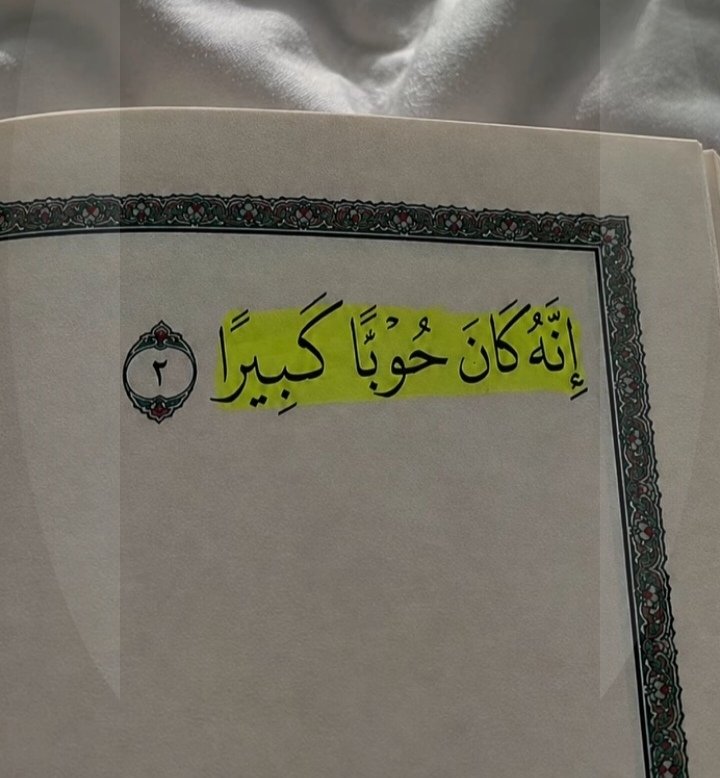 إِنَّهُ كَانَ حُوْبًّا كَبِيرًا ٢